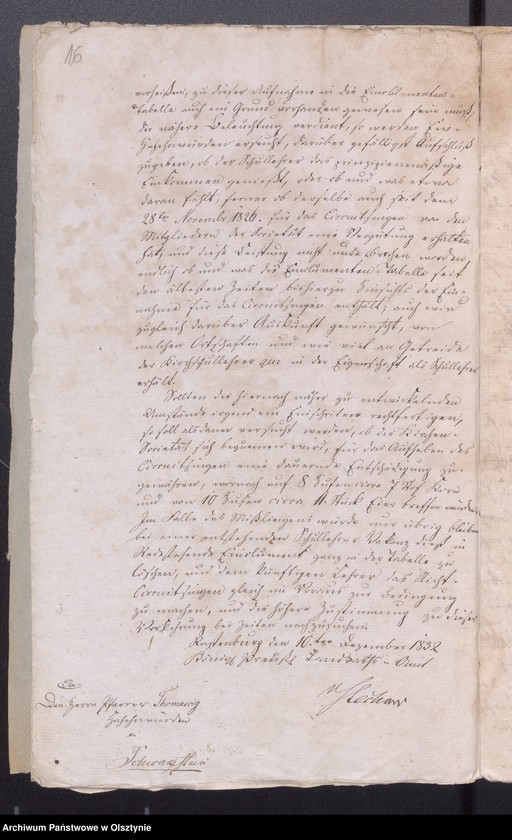 16
verheißen, zu dieser Aufnahme in die Emolumenten-
Tabelle auch ein Grund vorhanden gewesen sein muß,
der nähere Beleuchtung verdient, so werden Ew.
Hochehrwürden ersucht, darüber gefälligst Aufschluß
zugeben, ob der Schullehrer das principienmäßige
Einkommen genießt, oder ob und was etwa
daran fehlt, ferner ob derselbe auch seit dem
28ten November 1820. für das Circuitsingen von den
Mitgliedern der Societät eine Vergütung erhalten
hat, und diese Leistung nicht unterbrochen worden
endlich ob und was die Emolumenten-Tabelle seit
den ältesten Zeiten bisherzu hinsichts der Ein-
nahme für das Circuitsingen enthält; auch wird
zugleich darüber Auskunft gewünscht, von
welchen Ortschaften und wie viel an Getreide
der Kirchschullehrer qua in der Eigenschaft als Schullehrer
erhält.
Sollten die hiernach näher zu entwickelnden
Umstände irgend ein Einschreiten rechtfertigen,
so soll alsdann versucht werden, ob die Kirchen-
Societät sich bequemen wird, für das Aufheben des
Circuitsingen eine dauernde Entschädigung zu-
gewähren, wornach auf 8 Hufen circa 7 Korn
und von 10 Hufen circa 11 Stück Eier treffen würden
Im Falle des Mißlingens würde nur übrig bleiben
bei einer entstehenden Schullehrer Vakanz dieß in
Redestehende Emolument ganz in der Tabelle zu
löschen, und dem künftigen Lehrer das Nicht-
Circuitsingen gleich im Voraus zur Bedingung
zu machen, und die höhere Zustimmung zu dieser
Vorkehrung bei Zeiten nachzusuchen.
Rastenburg den 10ten Dezember 1832
Königl. Preußl. Landraths-Amt
An
Den Herrn Pfarrer
Hochehrwürden
in
Schwarzstein
Archiwum Państwowe w Olsztynie
Archiwum Państwowe w Olsztynie